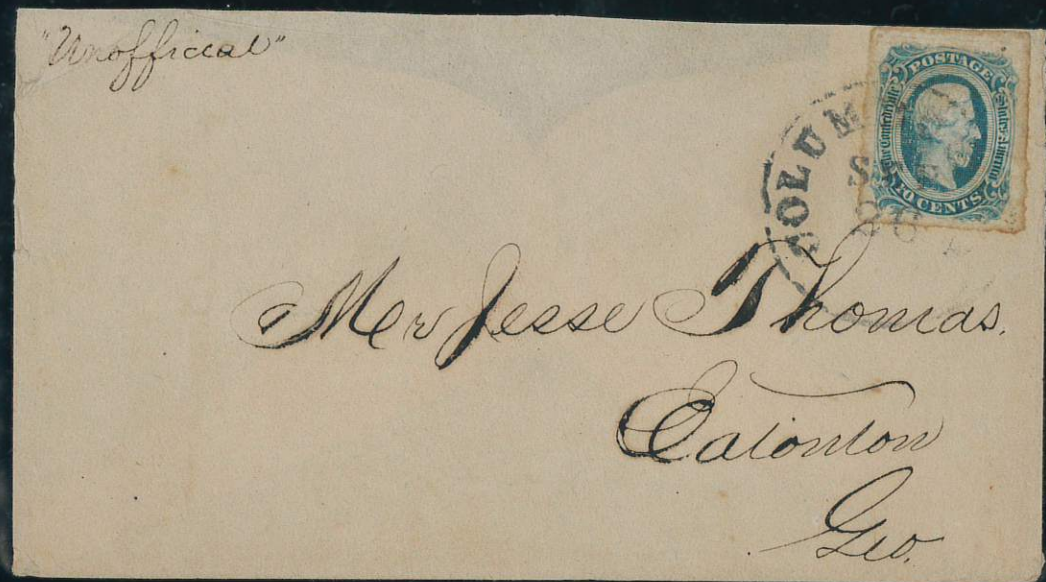 "Unofficial"
POSTAGE
The Confederate States of America
10 CENTS
COLUM
SEP
Mr Jesse Thomas.
Eatonton
Geo.